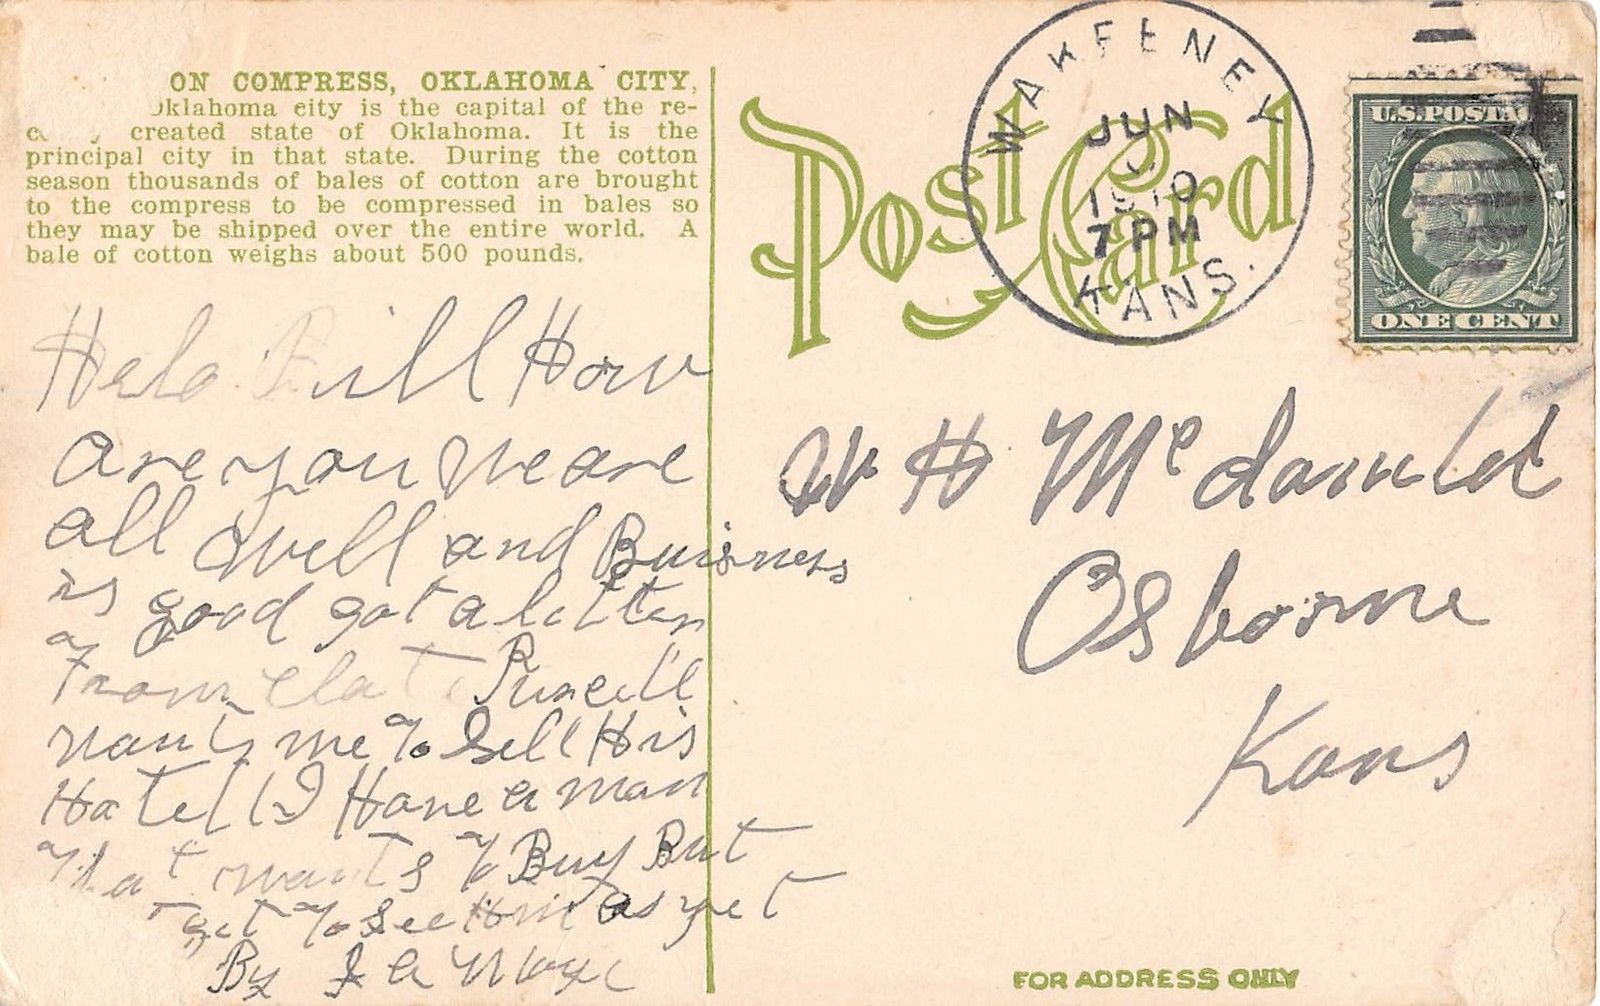 ON COMPRESS, OKLAHOMA CITY,
Oklahoma city is the capital of the re-
created state of Oklahoma. It is the
principal city in that state. During the cotton
season thousands of bales of cotton are brought
to the compress to be compressed in bales so
they may be shipped over the entire world. A
bale of cotton weighs about 500 pounds.
Helo Bill How
are you We are
all well and Buisness
is good got a letter
From Purcell
wants me To Sell His
Hotell I Have a man
That wants To Buy But
get To see Him as yet
By
Post Card
WAKEENEY
JUN
1910
7 PM
KANS.
U.S. POSTAGE
ONE CENT
W H Mcdanild
Osborne
Kans
FOR ADDRESS ONLY